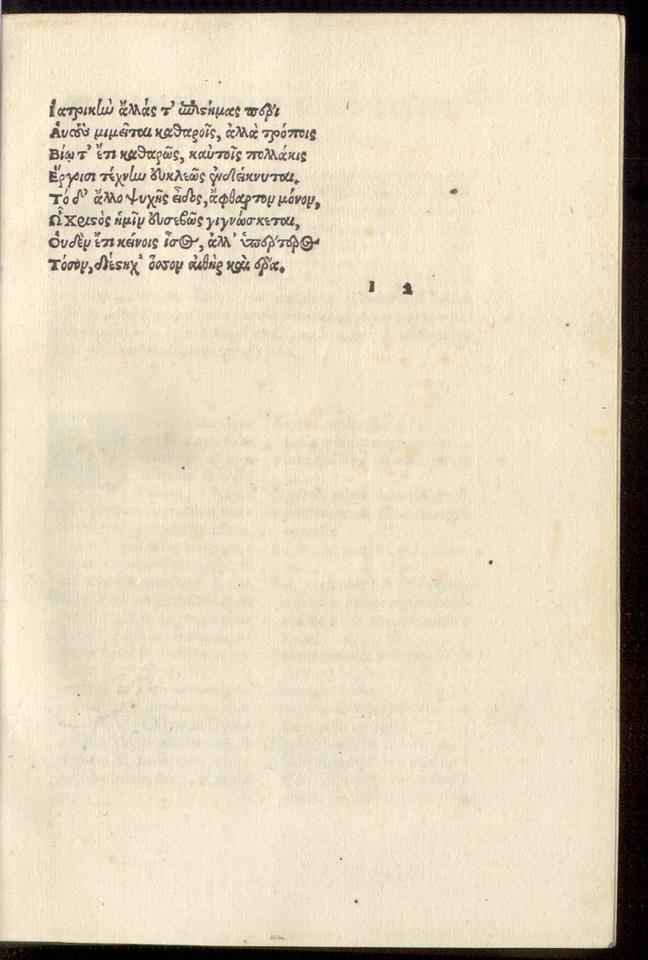 Ἰατρικὴν ἄλλάς τ' ἐπιστήμας περὶ
Αὐτοῦ μιμεῖται καθαροῖς, ἀλλὰ τρόποις
Βίῳ τ' ἔτι καθαρῶς, καὐτοῖς πολλάκις
Ἔργοισι τέχνην εὐκλεῶς ἐνδείκνυται.
Τό δ' ἄλλο ψυχῆς εἶδος, ἄφθαρτον μόνον,
Ὧ Χριστὸς ἡμῖν εὐσεβῶς γιγνώσκεται,
Οὐδὲν ἔτι κείνοις ἶσος, ἀλλ' ὑπέρτερος
Τόσον, διέστηχ' ὅσσον αἰθὴρ καὶ ἔρα.
1 2